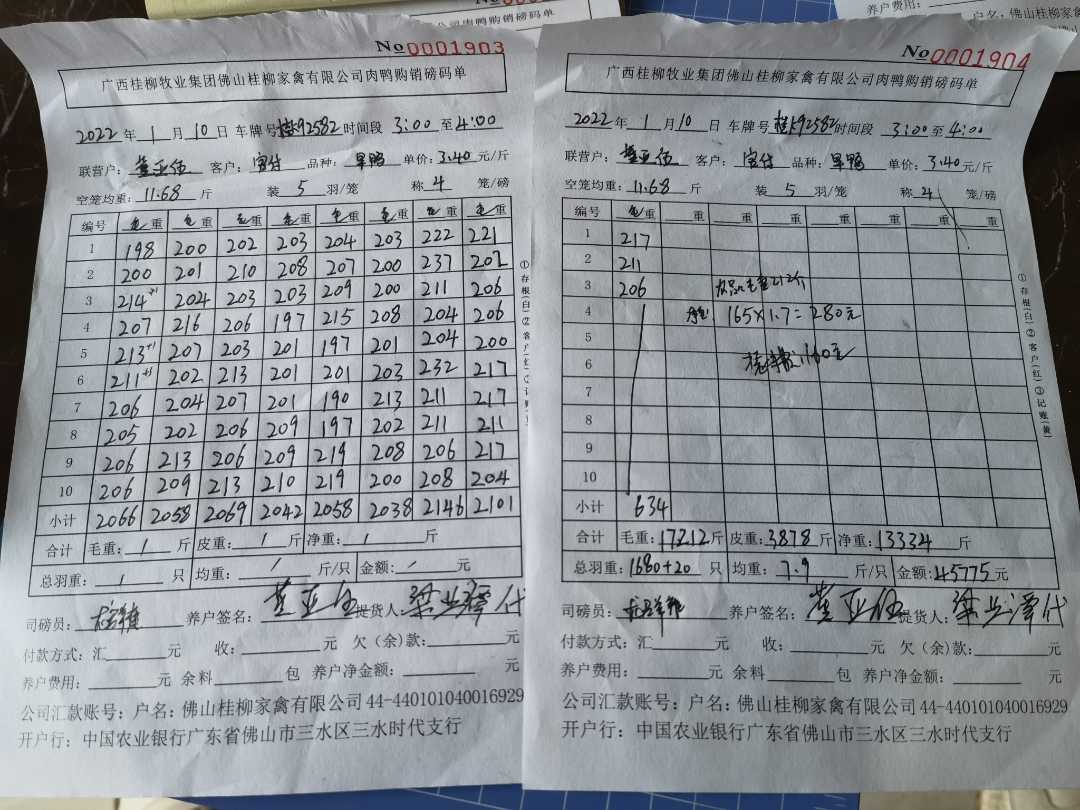 肉鸭购销磅码单
养户费用：
户名：佛山桂柳家禽有限公
No 0001903
广西桂柳牧业集团佛山桂柳家禽有限公司肉鸭购销磅码单
2022年 1月 10日 车牌号 桂K92582 时间段 3:00 至 4:00
联营户： 客户： 品种： 单价：3.40 元/斤
空笼均重：11.68 斤 装 5 羽/笼 称 4 笼/磅
编号 毛重 毛重 毛重 毛重 毛重 毛重 毛重 毛重
1 198 200 202 203 204 203 222 221
2 200 201 210 208 207 200 237 202
3 214+1 204 203 203 209 200 211 206
4 207 216 206 197 215 208 204 206
5 213+1 207 203 201 197 201 204 200
6 211 202 213 201 201 203 232 217
7 206 204 207 201 190 213 211 217
8 205 202 206 209 197 202 211 211
9 206 213 206 209 219 208 206 217
10 206 209 213 210 219 200 208 204
小计 2066 2058 2069 2042 2058 2038 2146 2101
合计 毛重：/ 斤 皮重：/ 斤 净重：/ 斤
总羽重：/ 只 均重：/ 斤/只 金额：/ 元
司磅员： 养户签名： 提货人： 代
付款方式：汇 元 收： 元 欠（余）款： 元
养户费用： 元 余料 包 养户净金额： 元
公司汇款账号：户名：佛山桂柳家禽有限公司44-440101040016929
开户行：中国农业银行广东省佛山市三水区三水时代支行
①存根(白)②客户(红)
No 0001904
广西桂柳牧业集团佛山桂柳家禽有限公司肉鸭购销磅码单
2022年 1月 10日 车牌号 桂K92582 时间段 3:00 至 4:00
联营户： 客户： 品种： 单价：3.40 元/斤
空笼均重：11.68 斤 装 5 羽/笼 称 4 笼/磅
编号 毛重 重 重 重 重 重 重 重
1 217
2 211
3 206 毛重212个
4 165×1.7=280元
5
6 160元
7
8
9
10
小计 634
合计 毛重：17212斤 皮重：3878斤 净重：13334斤
总羽重：1680+20 只 均重：7.9 斤/只 金额：45775元
司磅员： 养户签名： 提货人： 代
付款方式：汇 元 收： 元 欠（余）款： 元
养户费用： 元 余料 包 养户净金额： 元
公司汇款账号：户名：佛山桂柳家禽有限公司44-440101040016929
开户行：中国农业银行广东省佛山市三水区三水时代支行
①存根(白)②客户(红)③记账(黄)